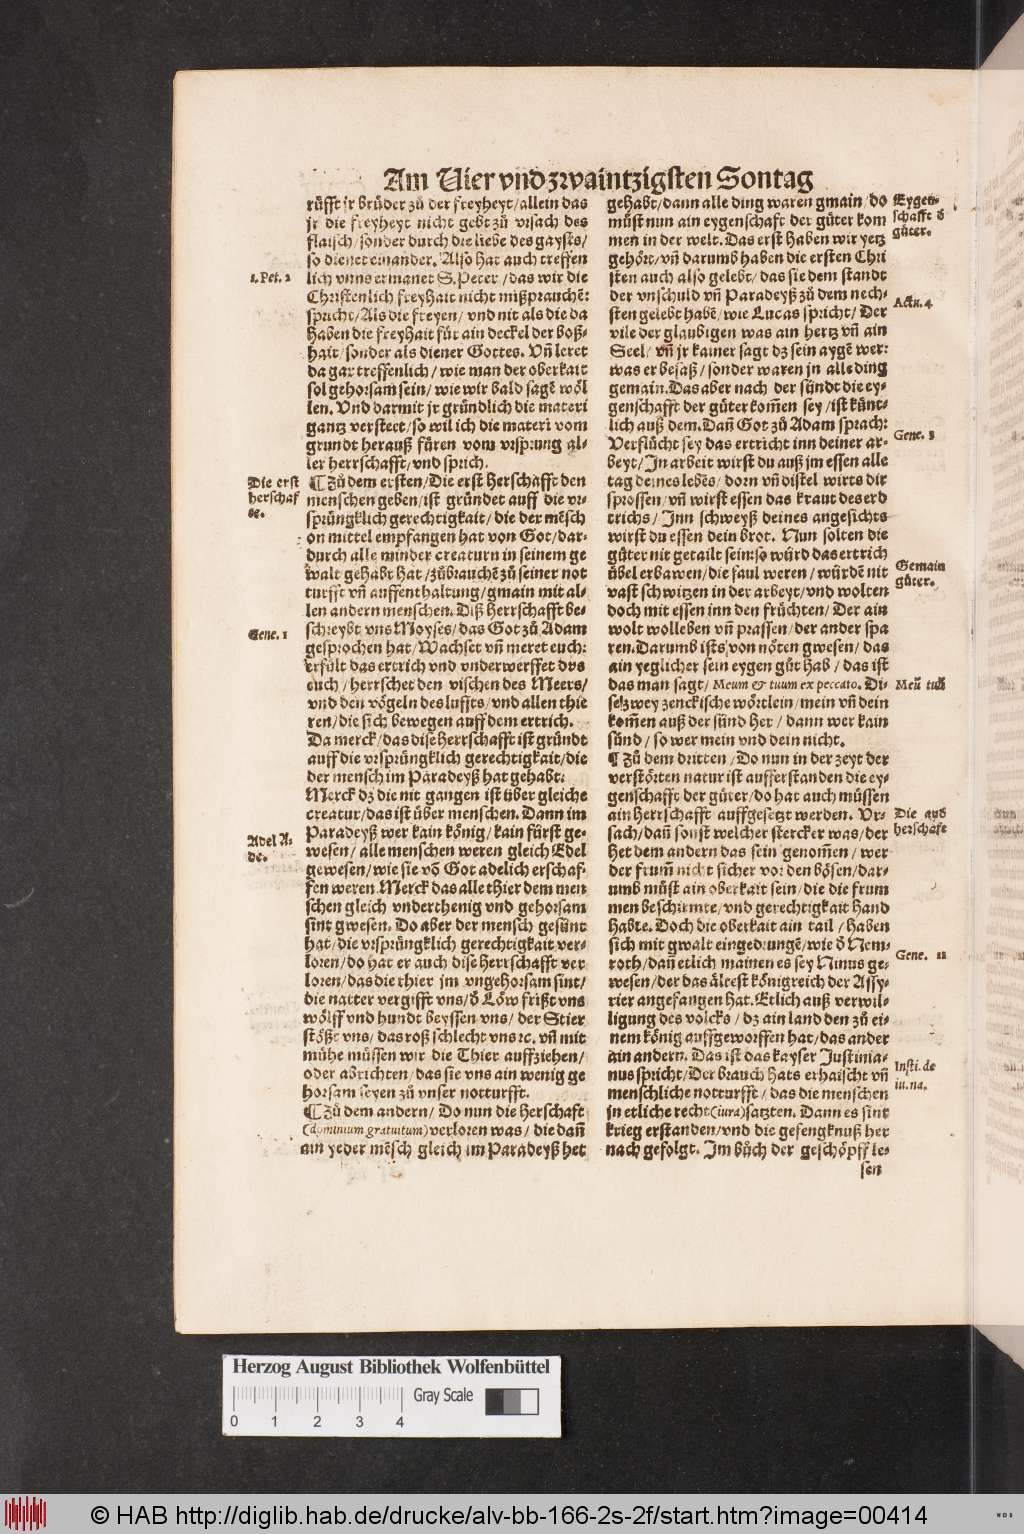 Am Vier vnd zwaintzigsten Sontag
rüfft jr brüder zů der freyheyt/allein das
jr die freyheyt nicht gebt zů vrsach des
flaisch/sonder durch die liebe des gaysts/
so dienet einander. Also hat auch treffen
1. Pet. 2
lich vnns ermanet S. Peter/das wir die
Christenlich freyhait nicht mißprauchẽ:
spricht/Als die freyen/vnd nit als die da
haben die freyhait für ain deckel der boß-
hait/sonder als diener Gottes. Vñ leret
da gar treffenlich/wie man der oberkait
sol gehorsam sein/wie wir bald sagẽ wöl
len. Vnd darmit jr gründlich die materi
gantz versteet/so wil ich die materi vom
grundt herauß füren vom vrsprung al-
ler herrschafft/vnd sprich.
Die erst
herschaf
de.
¶ Zů dem ersten/Die erst herschafft den
menschen geben/ist gründet auff die vr-
sprüngklich gerechtigkait/die der mẽsch
on mittel empfangen hat von Got/dar-
durch alle minder creaturn in seinem ge
walt gehabt hat/zůbrauchẽ zů seiner not
turfft vñ auffenthaltung/gmain mit al-
len andern menschen. Diß herrschafft be-
Gene. 1
schreybt vns Moyses/das Got zů Adam
gesprochen hat/Wachset vñ meret euch:
erfült das ertrich vnd vnderwerffet dvs
euch/herrschet den vischen des Meers/
vnd den vögeln des luffts/vnd allen thie
ren/die sich bewegen auff dem ertrich.
Da merck/das dise herrschafft ist gründt
auff die vrsprüngklich gerechtigkait/die
der mensch im Paradeyß hat gehabt:
Merck dz die nit gangen ist über gleiche
creatur/das ist über menschen. Dann im
Adel A-
de.
Paradeyß wer kain könig/kain fürst ge-
wesen/alle menschen weren gleich Edel
gewesen/wie sie võ Got adelich erschaf-
fen weren. Merck das alle thier dem men
schen gleich vnderthenig vnd gehorsam
sint gwesen. Do aber der mensch gesünt
hat/die vrsprüngklich gerechtigkait ver-
loren/do hat er auch dise herrschafft ver
loren/das die thier jm vngehorsam sint/
die natter vergifft vns/ð Löw frißt vns
wölff vnd hundt beyssen vns/der Stier
stößt vns/das roß schlecht vns ꝛc. vñ mit
mühe müssen wir die Thier auffziehen/
oder abrichten/das sie vns ain wenig ge
horsam seyen zů vnser notturfft.
¶ Zů dem andern/Do nun die herschaft
(dominium gratuitum) verloren was/die dañ
ain yeder mẽsch gleich im Paradeyß het
gehabt/dann alle ding waren gmain/do
Eygen-
schafft ð
güter.
můst nun ain eygenschaft der güter kom
men in der welt. Das erst haben wir yetz
gehört/vñ darumb haben die ersten Chri
sten auch also gelebt/das sie dem standt
der vnschuld vñ Paradeyß zů dem nech-
Actu. 4
sten gelebt habẽ/wie Lucas spricht/Der
vile der glaubigen was ain hertz vñ ain
Seel/vñ jr kainer sagt dz sein aygẽ wer:
was er besaß/sonder waren jn alle ding
gemain. Das aber nach der sündt die ey-
genschafft der güter kom̃en sey/ist künt-
lich auß dem. Dañ Got zů Adam sprach:
Gene. 3
Verflůcht sey das ertricht inn deiner ar-
beyt/In arbeit wirst du auß jm essen alle
tag deines lebẽs/dorn vñ distel wirts dir
sprossen/vñ wirst essen das kraut des erd
trichs/Inn schweyß deines angesichts
wirst du essen dein brot. Nun solten die
güter nit getailt sein:so würd das ertrich
Gemain
güter.
übel erbawen/die faul weren/würdẽ nit
vast schwitzen in der arbeyt/vnd wolten
doch mit essen inn den früchten/Der ain
wolt wolleben vñ prassen/der ander spa
ren. Darumb ists von nöten gwesen/das
ain yeglicher sein eygen gůt hab/das ist
Meũ tuũ
das man sagt/Meum & tuum ex peccato. Di-
se zwey zenckische wörtlein/mein vñ dein
kom̃en auß der sünd her/dann wer kain
sünd/so wer mein vnd dein nicht.
¶ Zů dem dritten/Do nun in der zeyt der
verstörten natur ist aufferstanden die ey-
genschafft der güter/do hat auch müssen
Die and
herschafe
ain herrschafft auffgesetzt werden. Vr-
sach/dañ sonst welcher stercker was/der
het dem andern das sein genom̃en/wer
der frum̃ nicht sicher vor den bösen/dar-
umb můst ain oberkait sein/die die frum
men beschirmte/vnd gerechtigkait hand
habte. Doch die oberkait ain tail/haben
sich mit gwalt eingedrungẽ/wie ð Nem-
Gene. 11
roth/dañ etlich mainen es sey Ninus ge-
wesen/der das ältest königreich der Assy-
rier angefangen hat. Etlich auß verwil-
ligung des volcks/dz ain land den zů ei-
nem könig auffgeworffen hat/das ander
ain andern. Das ist das kayser Justinia-
Insti. de
iu. na.
nus spricht/Der brauch hats erhaischt vñ
menschliche notturfft/das die menschen
jn etliche recht (iura) satzten. Dann es sint
krieg erstanden/vnd die gefengknuß her
nach gefolgt. Im bůch der geschöpff le-
sen
Herzog August Bibliothek Wolfenbüttel
Gray Scale
0 1 2 3 4
© HAB http://diglib.hab.de/drucke/alv-bb-166-2s-2f/start.htm?image=00414